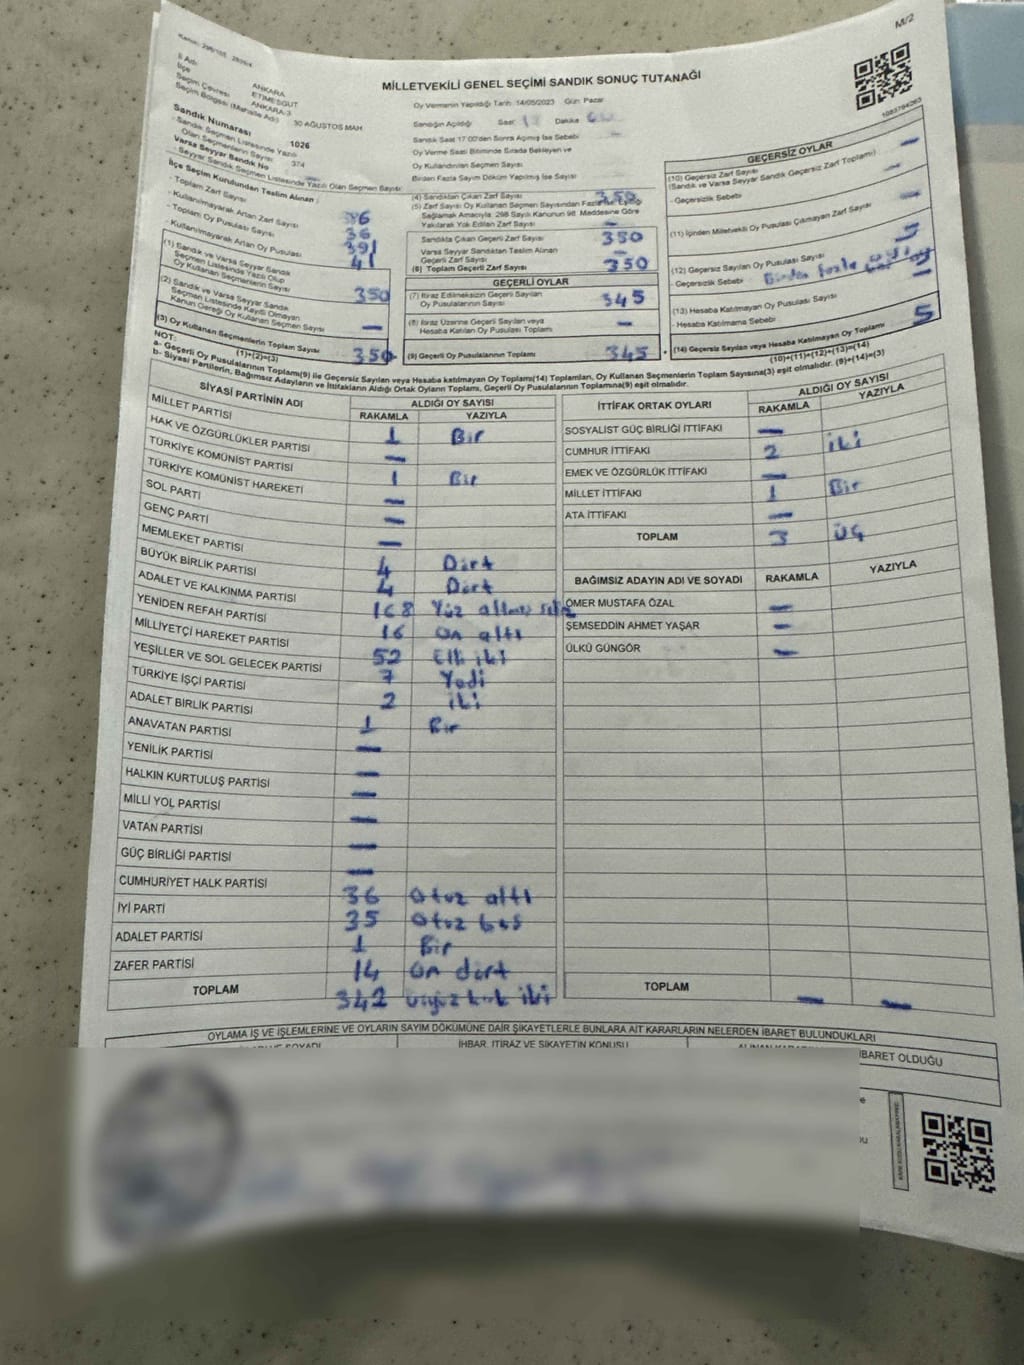 M/2
Kanun: 298/105 2839/4
İl Adı ANKARA
İlçe ETİMESGUT
Seçim Çevresi ANKARA-3
Seçim Bölgesi (Mahalle Adı) 30 AĞUSTOS MAH
MİLLETVEKİLİ GENEL SEÇİMİ SANDIK SONUÇ TUTANAĞI
Oy Vermenin Yapıldığı Tarih: 14/05/2023 Gün: Pazar
Sandığın Açıldığı Saat Dakika
Sandık Saat 17:00'den Sonra Açılmış İse Sebebi —
Oy Verme Saati Bitiminde Sırada Bekleyen ve
Oy Kullandırılan Seçmen Sayısı
Birden Fazla Sayım Döküm Yapılmış İse Sayısı
Sandık Numarası 1026
- Sandık Seçmen Listesinde Yazılı
Olan Seçmenlerin Sayısı 374
Varsa Seyyar Sandık No
- Seyyar Sandık Listesinde Yazılı Olan Seçmen Sayısı
İlçe Seçim Kurulundan Teslim Alınan :
- Toplam Zarf Sayısı
- Kullanılmayarak Artan Zarf Sayısı 36
- Toplam Oy Pusulası Sayısı 391
- Kullanılmayarak Artan Oy Pusulası 41
(1) Sandık ve Varsa Seyyar Sandık
Seçmen Listesinde Yazılı Olup
Oy Kullanan Seçmenlerin Sayısı 350
(2) Sandık ve Varsa Seyyar Sandık
Seçmen Listesinde Kayıtlı Olmayan
Kanun Gereği Oy Kullanan Seçmen Sayısı —
(3) Oy Kullanan Seçmenlerin Toplam Sayısı
(1)+(2)=(3) 350
(4) Sandıktan Çıkan Zarf Sayısı 350
(5) Zarf Sayısı Oy Kullanan Seçmen Sayısından Fazla İse Eşitliği
Sağlamak Amacıyla, 298 Sayılı Kanunun 98. Maddesine Göre
Yakılarak Yok Edilen Zarf Sayısı —
Sandıkta Çıkan Geçerli Zarf Sayısı 350
Varsa Seyyar Sandıktan Teslim Alınan
Geçerli Zarf Sayısı —
(6) Toplam Geçerli Zarf Sayısı 350
GEÇERLİ OYLAR
(7) İtiraz Edilmeksizin Geçerli Sayılan
Oy Pusulalarının Sayısı 345
(8) İtiraz Üzerine Geçerli Sayılan veya
Hesaba Katılan Oy Pusulası Toplamı —
(9) Geçerli Oy Pusulalarının Toplamı 345
1083794063
GEÇERSİZ OYLAR
(10) Geçersiz Zarf Sayısı
(Sandık ve Varsa Seyyar Sandık Geçersiz Zarf Toplamı) —
- Geçersizlik Sebebi
(11) İçinden Milletvekili Oy Pusulası Çıkmayan Zarf Sayısı —
(12) Geçersiz Sayılan Oy Pusulası Sayısı 5
- Geçersizlik Sebebi Birden fazla
(13) Hesaba Katılmayan Oy Pusulası Sayısı —
- Hesaba Katılmama Sebebi
(14) Geçersiz Sayılan veya Hesaba Katılmayan Oy Toplamı 5
(10)+(11)+(12)+(13)=(14)
NOT:
a- Geçerli Oy Pusulalarının Toplamı(9) ile Geçersiz Sayılan veya Hesaba katılmayan Oy Toplamı(14) Toplamları, Oy Kullanan Seçmenlerin Toplam Sayısına(3) eşit olmalıdır. (9)+(14)=(3)
b- Siyasi Partilerin, Bağımsız Adayların ve İttifakların Aldığı Ortak Oyların Toplamı, Geçerli Oy Pusulalarının Toplamına(9) eşit olmalıdır.
SİYASİ PARTİNİN ADI ALDIĞI OY SAYISI
RAKAMLA YAZIYLA
MİLLET PARTİSİ 1 Bir
HAK VE ÖZGÜRLÜKLER PARTİSİ —
TÜRKİYE KOMÜNİST PARTİSİ 1 Bir
TÜRKİYE KOMÜNİST HAREKETİ —
SOL PARTİ —
GENÇ PARTİ —
MEMLEKET PARTİSİ 4 Dört
BÜYÜK BİRLİK PARTİSİ 4 Dört
ADALET VE KALKINMA PARTİSİ 168 Yüz altmış sekiz
YENİDEN REFAH PARTİSİ 16 On altı
MİLLİYETÇİ HAREKET PARTİSİ 52 Elli iki
YEŞİLLER VE SOL GELECEK PARTİSİ 7 Yedi
TÜRKİYE İŞÇİ PARTİSİ 2 iki
ADALET BİRLİK PARTİSİ 1 Bir
ANAVATAN PARTİSİ —
YENİLİK PARTİSİ —
HALKIN KURTULUŞ PARTİSİ —
MİLLİ YOL PARTİSİ —
VATAN PARTİSİ —
GÜÇ BİRLİĞİ PARTİSİ —
CUMHURİYET HALK PARTİSİ 36 otuz altı
İYİ PARTİ 35 otuz beş
ADALET PARTİSİ 1 Bir
ZAFER PARTİSİ 14 on dört
TOPLAM 342 üçyüz kırk iki
İTTİFAK ORTAK OYLARI ALDIĞI OY SAYISI
RAKAMLA YAZIYLA
SOSYALİST GÜÇ BİRLİĞİ İTTİFAKI —
CUMHUR İTTİFAKI 2 iki
EMEK VE ÖZGÜRLÜK İTTİFAKI —
MİLLET İTTİFAKI 1 Bir
ATA İTTİFAKI —
TOPLAM 3 üç
BAĞIMSIZ ADAYIN ADI VE SOYADI RAKAMLA YAZIYLA
ÖMER MUSTAFA ÖZAL —
ŞEMSEDDİN AHMET YAŞAR —
ÜLKÜ GÜNGÖR —
TOPLAM — —
OYLAMA İŞ VE İŞLEMLERİNE VE OYLARIN SAYIM DÖKÜMÜNE DAİR ŞİKAYETLERLE BUNLARA AİT KARARLARIN NELERDEN İBARET BULUNDUKLARI
SOYADI İHBAR, İTİRAZ VE ŞİKAYETİN KONUSU İBARET OLDUĞU